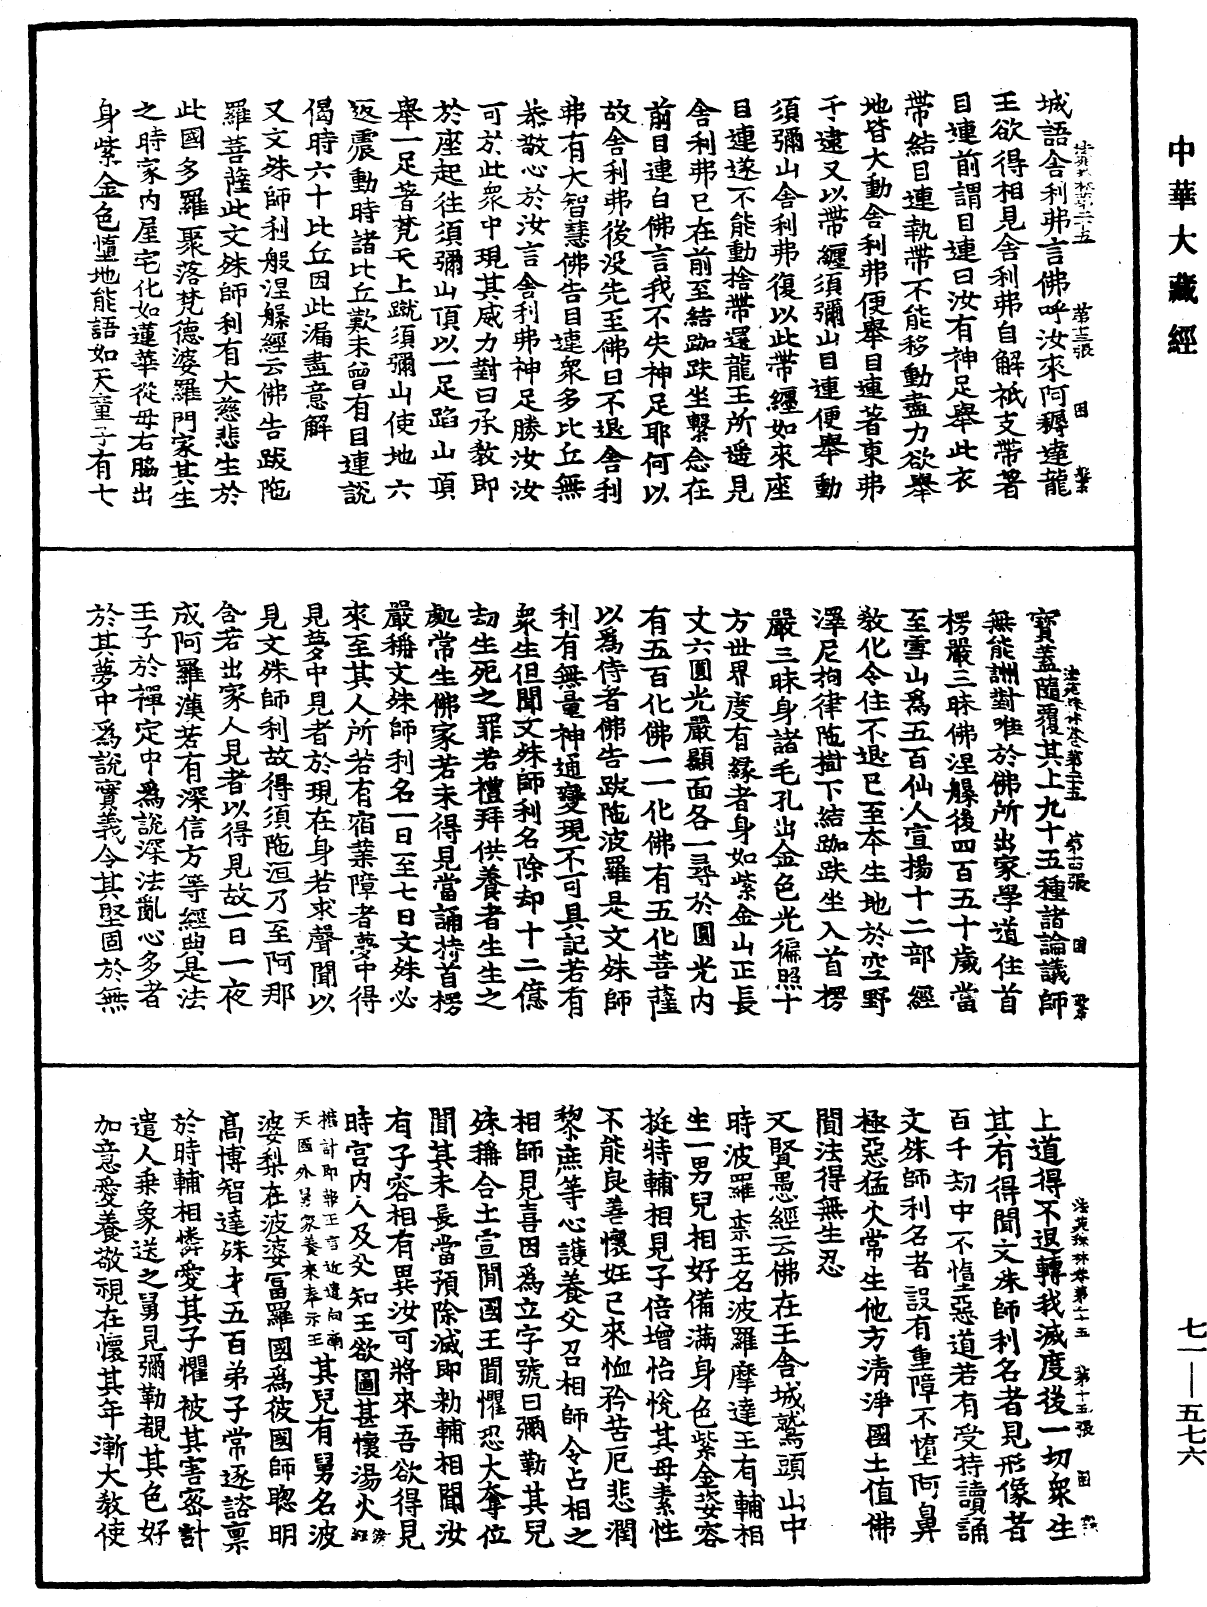 中華大藏經
城語舍利弗言佛呼汝來阿耨達龍
王欲得相見舍利弗自解祇支帶著
目連前謂目連曰汝有神足舉此衣
帶結目連執帶不能移動盡力欲舉
地皆大動舍利弗便舉目連著東弗
于逮又以帶纏須彌山目連便舉動
須彌山舍利弗復以此帶纏如來座
目連遂不能動捨帶還龍王所遥見
舍利弗已在前至結跏趺坐繫念在
前目連白佛言我不失神足耶何以
故舍利弗後没先至佛曰不退舍利
弗有大智慧佛告目連衆多比丘無
恭敬心於汝言舍利弗神足勝汝汝
可於此衆中現其威力對曰承教即
於座起往須彌山頂以一足蹈山頂
舉一足著梵天上蹴須彌山使地六
返震動時諸比丘歎未曾有目連説
偈時六十比丘因此漏盡意解
又文殊師利般涅槃經云佛告跋陁
羅菩薩此文殊師利有大慈悲生於
此國多羅聚落梵德婆羅門家其生
之時家内屋宅化如蓮華從母右脇出
身紫金色墮地能語如天童子有七
第十三張
寶蓋隨覆其上九十五種諸論議師
無能詶對唯於佛所出家學道住首
楞嚴三昧佛涅槃後四百五十歲當
至雪山爲五百仙人宣揚十二部經
教化令住不退已至本生地於空野
澤尼拘律陁樹下結跏趺坐入首楞
嚴三昧身諸毛孔出金色光徧照十
方世界度有緣者身如紫金山正長
丈六圓光嚴顯面各一尋於圓光内
有五百化佛一一化佛有五化菩薩
以爲侍者佛告跋陁波羅是文殊師
利有無量神通變現不可具記若有
衆生但聞文殊師利名除却十二億
劫生死之罪若禮拜供養者生生之
處常生佛家若未得見當誦持首楞
嚴稱文殊師利名一日至七日文殊必
來至其人所若有宿業障者夢中得
見夢中見者於現在身若求聲聞以
見文殊師利故得須陁洹乃至阿那
含若出家人見者以得見故一日一夜
成阿羅漢若有深信方等經典是法
王子於禪定中爲説深法亂心多者
於其夢中爲説實義令其堅固於無
上道得不退轉我滅度後一切衆生
其有得聞文殊師利名者見形像者
百千劫中不墮惡道若有受持讀誦
文殊師利名者設有重障不墮阿鼻
極惡猛火常生他方清淨國土值佛
聞法得無生忍
又賢愚經云佛在王舍城鷲頭山中
時波羅柰王名波羅摩達王有輔相
生一男兒相好備滿身色紫金姿容
挺特輔相見子倍增怡悅其母素性
不能良善懷妊已來恤矜苦厄悲潤
黎庶等心護養父召相師令占相之
相師見喜因爲立字號曰彌勒其兒
殊稱合土宣聞國王聞懼恐大奪位
聞其未長當預除滅即勑輔相聞汝
有子容相有異汝可將來吾欲得見
時宫内人及父知王欲圖甚懷湯火
其兒有舅名波
婆梨在波婆富羅國爲彼國師聰明
高博智達殊才五百弟子常逐諮禀
於時輔相憐愛其子懼被其害密計
遣人乗象送之舅見彌勒覩其色好
加意愛養敬視在懷其年漸大教使
第十五張
七一—五七六